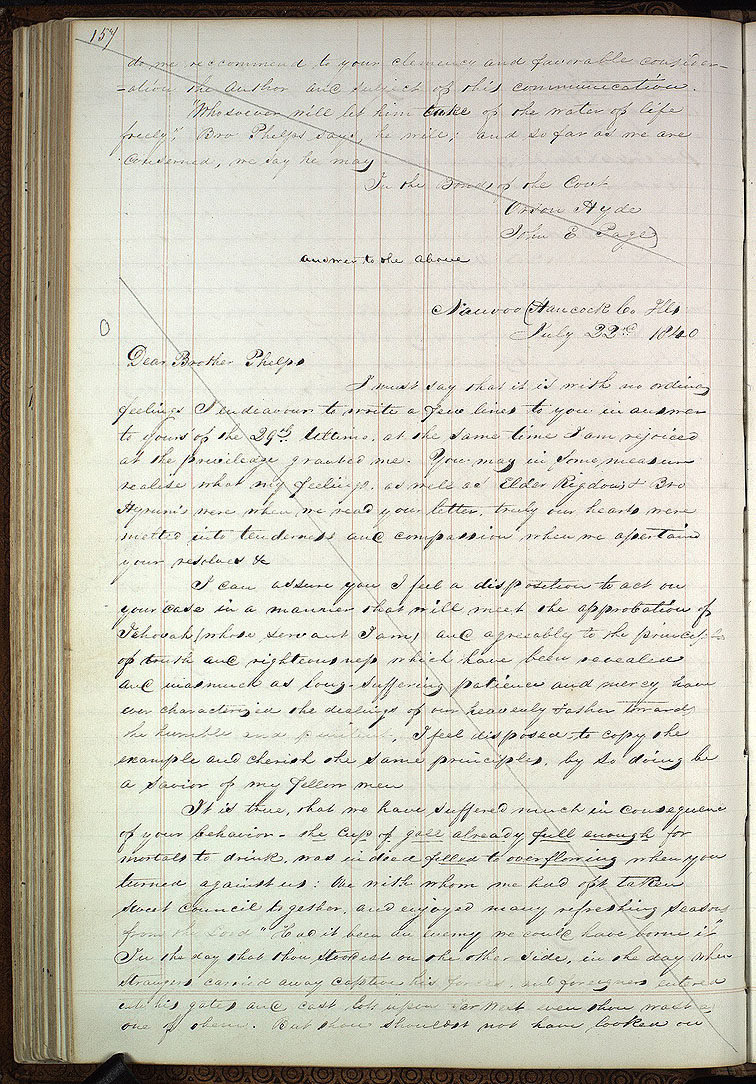 157
do we reccommend to your clemency and favorable consider-
-ation the author and subject of this communication.
"Whosoever will let him take of the water of life
freely", Bro Phelps says, he will; and so far as we are
concerned, we say he may
In the Bonds of the Covt
Orson Hyde
John E Page)
answer to the above
Nauvoo (Hancock Co Ills
July 22nd 1840
O
Dear Brother Phelps
I must say that it is with no ordinay
feelings I endeavour to write a few lines to you in answer
to yours of the 29th Ultimo, at the same time I am rejoiced
at the priviledge granted me. You may in some measure
realise what my feelings, as well as Elder Rigdon's & Bro
Hyrum's were when we read your letter, truly our hearts were
melted into tenderness and compassion when we asertaind
your resolves &c
I can assure you I feel a disposition to act on
your case in a manner that will meet the approbation of
Jehovah (whose servant I am) and agreeably to the principles
of truth and righteousness which have been revealed
and inasmuch as long-suffering patience and mercy have
ever characterized the dealings of our heavenly Father towards
the humble and penitent, I feel disposed to copy the
example and cherish the same principles, by so doing be
a savior of my fellow men
It is true, that we have suffered much in consequence
of your behavior - the cup of gall already full enough for
mortals to drink, was indeed filled to overflowing when you
turned against us: One with whom we had oft taken
sweet council together, and enjoyed many refreshing seasons
from the Lord "Had it been an enemy we could have borne it"
In the day that thou stoodest on the other side, in the day when
strangers carried away captive his forces, and foreigners entered
into his gates and cast lots upon Far West even thou wast as
one of them. But thou shouldst not have looked on